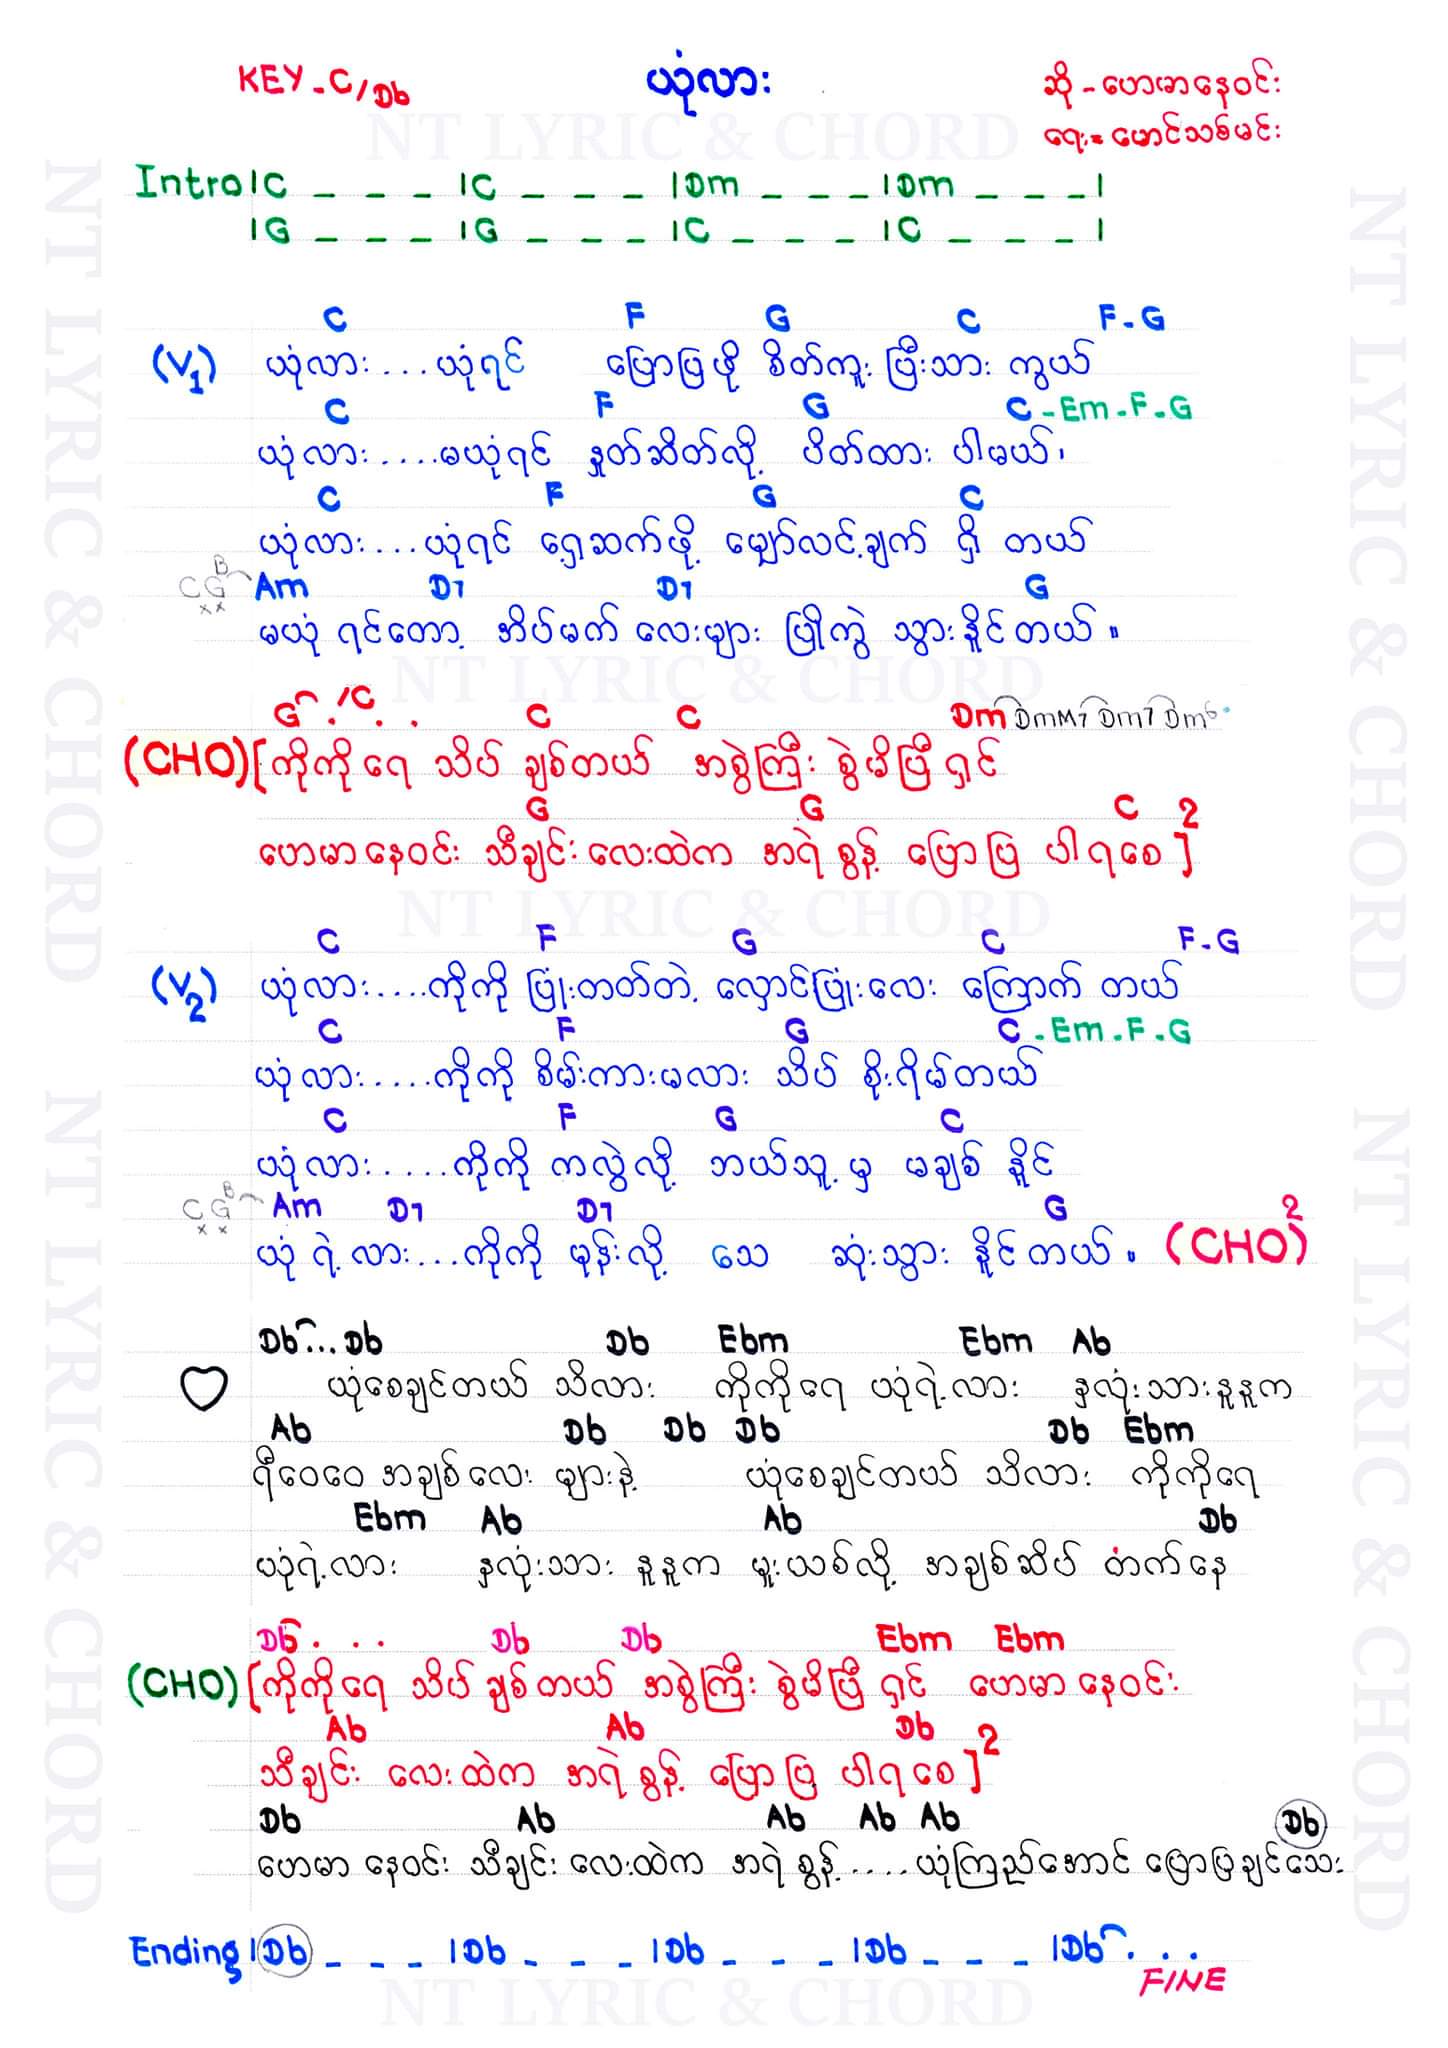 KEY - C/Db
ယုံလား
ဆို - ဟေမာနေဝင်း
ရေး = မောင်သစ်မင်း
NT LYRIC & CHORD
Intro |C _ _ _ |C _ _ _ |Dm _ _ _ |Dm _ _ _ |
|G _ _ _ |G _ _ _ |C _ _ _ |C _ _ _ |
C F G C F-G
(V1) ယုံလား....ယုံရင် ပြောပြဖို့ စိတ်ကူး ပြီးသား ကွယ်
C F G C-Em-F-G
ယုံလား....မယုံရင် နှုတ်ဆိတ်လို့ ပိတ်ထား ပါမယ်၊
C F G C
ယုံလား....ယုံရင် ရှေ့ဆက်ဖို့ မျှော်လင့်ချက် ရှိ တယ်
C G B Am D7 D7 G
မယုံ ရင်တော့ အိပ်မက် လေးများ ပြိုကွဲ သွားနိုင်တယ်။
NT LYRIC & CHORD
G . /C . . C C Dm DmM7 Dm7 Dm6
(CHO) [ကိုကိုရေ သိပ် ချစ်တယ် အစွဲကြီး စွဲမိပြီ ရှင်
G G C
ဟေမာနေဝင်း သီချင်းလေးထဲက အရဲစွန့် ပြောပြ ပါရစေ]2
NT LYRIC & CHORD
C F G C F-G
(V2) ယုံလား....ကိုကို ပြုံးတတ်တဲ့ လှောင်ပြုံးလေး ကြောက် တယ်
C F G C-Em-F-G
ယုံလား....ကိုကို စိမ်းကားမလား သိပ် စိုးရိမ်တယ်
C F G C
ယုံလား.....ကိုကို ကလွဲလို့ ဘယ်သူ့မှ မချစ် နိုင်
C G B Am D7 D7 G
ယုံ ရဲ့လား...ကိုကို မုန်းလို့ သေ ဆုံးသွား နိုင်တယ်။ (CHO)2
Db ... Db Db Ebm Ebm Ab
ယုံစေချင်တယ် သိလား ကိုကိုရေ ယုံရဲ့လား နှလုံးသားနုနုက
Ab Db Db Db Db Ebm
ရီဝေဝေ အချစ်လေး များနဲ့ ယုံစေချင်တယ် သိလား ကိုကိုရေ
Ebm Ab Ab Db
ယုံရဲ့လား နှလုံးသား နုနုက မူးယစ်လို့ အချစ်ဆိပ် တက်နေ
Db . . . Db Db Ebm Ebm
(CHO) [ကိုကိုရေ သိပ် ချစ်တယ် အစွဲကြီး စွဲမိပြီ ရှင် ဟေမာနေဝင်း
Ab Ab Db
သီချင်း လေးထဲက အရဲစွန့် ပြောပြ ပါရစေ]2
Db Ab Ab Ab Ab Db
ဟေမာ နေဝင်း သီချင်း လေးထဲက အရဲ စွန့် ....ယုံကြည်အောင် ပြောပြချင်သေး
Ending |Db _ _ _ |Db _ _ _ |Db _ _ _ |Db _ _ _ |Db . . .
FINE
NT LYRIC & CHORD
NT LYRIC & CHORD
NT LYRIC & CHORD
NT LYRIC & CHORD
NT LYRIC & CHORD